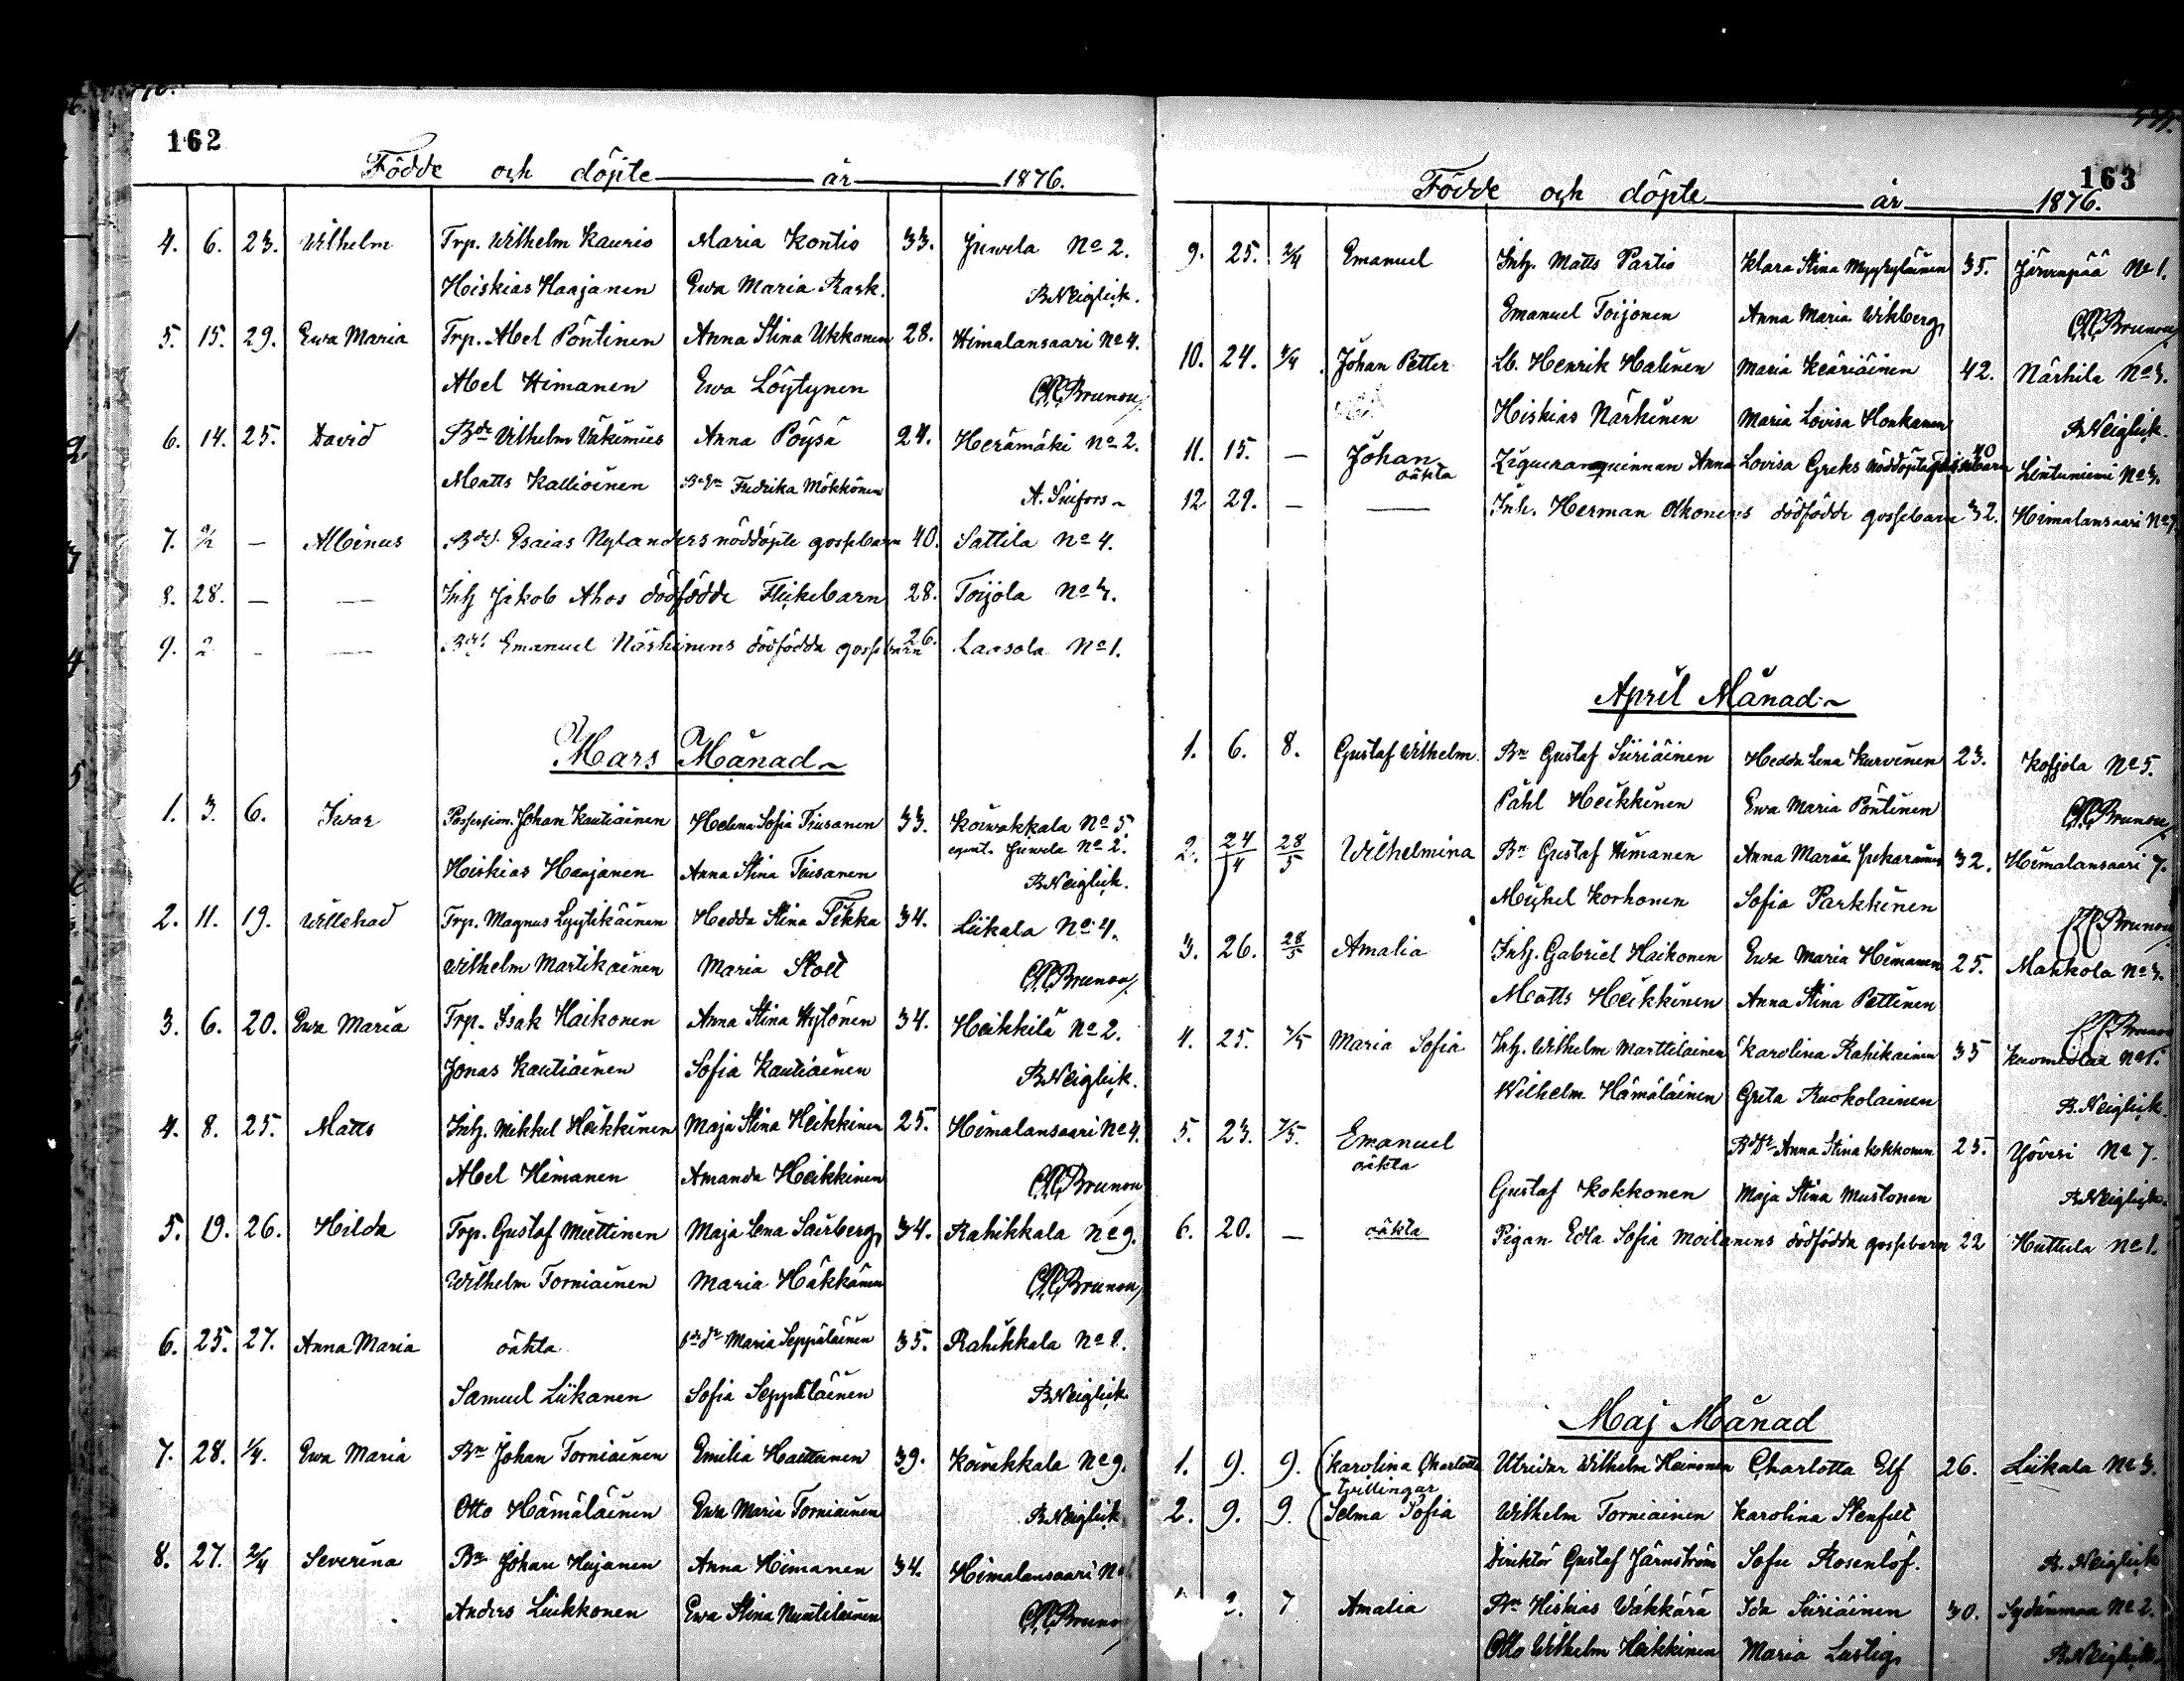 162
Födde och döpte år 1876.
4. 6. 23. Wilhelm Trp. Wilhelm Kaurio Maria Kontio 33. Juwela No 2.
Hiskias Haajanen Ewa Maria Rask. B Neiglick.
5. 15. 29. Ewa Maria Trp. Abel Pöntinen Anna Stina Ukkonen 28. Himalansaari No 4.
Abel Himanen Ewa Löytynen Brunou
6. 14. 25. David Wilhelm Anna Pöysä 24. Herämäki No 2.
Matts Kallioinen Fredrika Mökkönen A.
7. — Albinus Esaias Nylanders nöddöpte gossebarn 40. Sattila No 4.
8. 28. — — Inh Jakob Ahos dödfödde Flickebarn 28. Toijola No
9. 2 — — Emanuel Närhinens dödfödda gossebarn 26. Laasola No 1.
Mars Månad
1. 3. 6. Iwar Possession. Johan Kautiainen Helena Sofia Tiusanen 33. Koiwakkala No 5.
Juwela No 2.
Hiskias Haajanen Anna Stina Tiusanen B Neiglick.
2. 11. 19. Willehad Trp. Magnus Lyytikäinen Hedda Stina Tikka 34. Liikala No 4.
Wilhelm Martikainen Maria Stolt Brunou
3. 6. 20. Ewa Maria Trp. Isak Haikonen Anna Stina Hytönen 34. Heikkilä No 2.
Jonas Kautiainen Sofia Kautiainen B Neiglick.
4. 8. 25. Matts Inh. Mikkel Heikkinen Maja Stina Heikkinen 25. Himalansaari No 4.
Abel Himanen Amanda Heikkinen Brunou
5. 19. 26. Hilda Trp. Gustaf Miettinen Maja Lena Sairberg 34. Rahikkala No 9.
Wilhelm Torniainen Maria Häkkänen Brunou
6. 25. 27. Anna Maria oäkta Maria Seppäläinen 35. Rahikkala No
Samuel Liikanen Sofia Seppäläinen B Neiglick
7. 28. 1/4. Ewa Maria Bn Johan Torniainen Emilia 39. Koiwakkala No 9.
Otto Hämäläinen Ewa Maria Torniainen B Neiglick
8. 27. 2/4 Severina Bn Johan Anna Himanen 34. Himalansaari No
Anders Liukkonen Ewa Stina Brunou
163
Födde och döpte år 1876.
9. 25. 2/4 Emanuel Inh. Matts Partio Klara Stina 35. Järvenpää No 1.
Emanuel Toijonen Anna Maria Wikberg Brunou
10. 24. Johan Petter Lb. Henrik Halinen Maria Keäriäinen 42. Närhilä No 3.
Hiskias Närhinen Maria Lovisa Honkanen B Neiglick.
11. 15. — Johan Anna Lovisa Greks nöddöpta gossebarn 40 Lintuniemi No 3.
oäkta
12 29. — — Inh. Herman Olkonens dödfödde gossebarn 32. Himalansaari No
April Månad
1. 6. 8. Gustaf Wilhelm. Bn Gustaf Siiriäinen Hedda Lena Kurvinen 23. Koljola No 5.
Påhl Heikkinen Ewa Maria Pöntinen Brunou
2. 24/4 28/5 Wilhelmina Bn Gustaf Himanen Anna Maria 32. Himalansaari 7.
Michel Korhonen Sofia Parkkinen Brunou
3. 26. 28/5 Amalia Inh. Gabriel Haikonen Ewa Maria Himanen 25. Mahkola No 3.
Matts Heikkinen Anna Stina Pettinen Brunou
4. 25. Maria Sofia Inh. Wilhelm Marttilainen Karolina Rahikainen 35 No 1.
Wilhelm Hämäläinen Greta Ruokolainen B. Neiglick.
5. 23. 7/5. Emanuel Anna Stina Kokkonen 25. Yöveri No 7.
oäkta
Gustaf Kokkonen Maja Stina Mustonen B. Neiglick.
6. 20. — oäkta Pigan Edla Sofia Moilanens dödfödda gossebarn 22 Huttula No 1.
Maj Månad
1. 9. 9. Karolina Charlotta Utridar Wilhelm Heinonen Charlotta Elf 26. Liikala No 3.
Tvillingar
2. 9. 9. Selma Sofia Wilhelm Torniainen Karolina Stenfelt
Direktör Gustaf Järnström Sofie Rosenlöf. B. Neiglick
2. 7 Amalia Bn Hiskias Wäkkärä Ida Siiriäinen 30. Sydänmaa No 2.
Otto Wilhelm Heikkinen Maria Lustig B Neiglick.